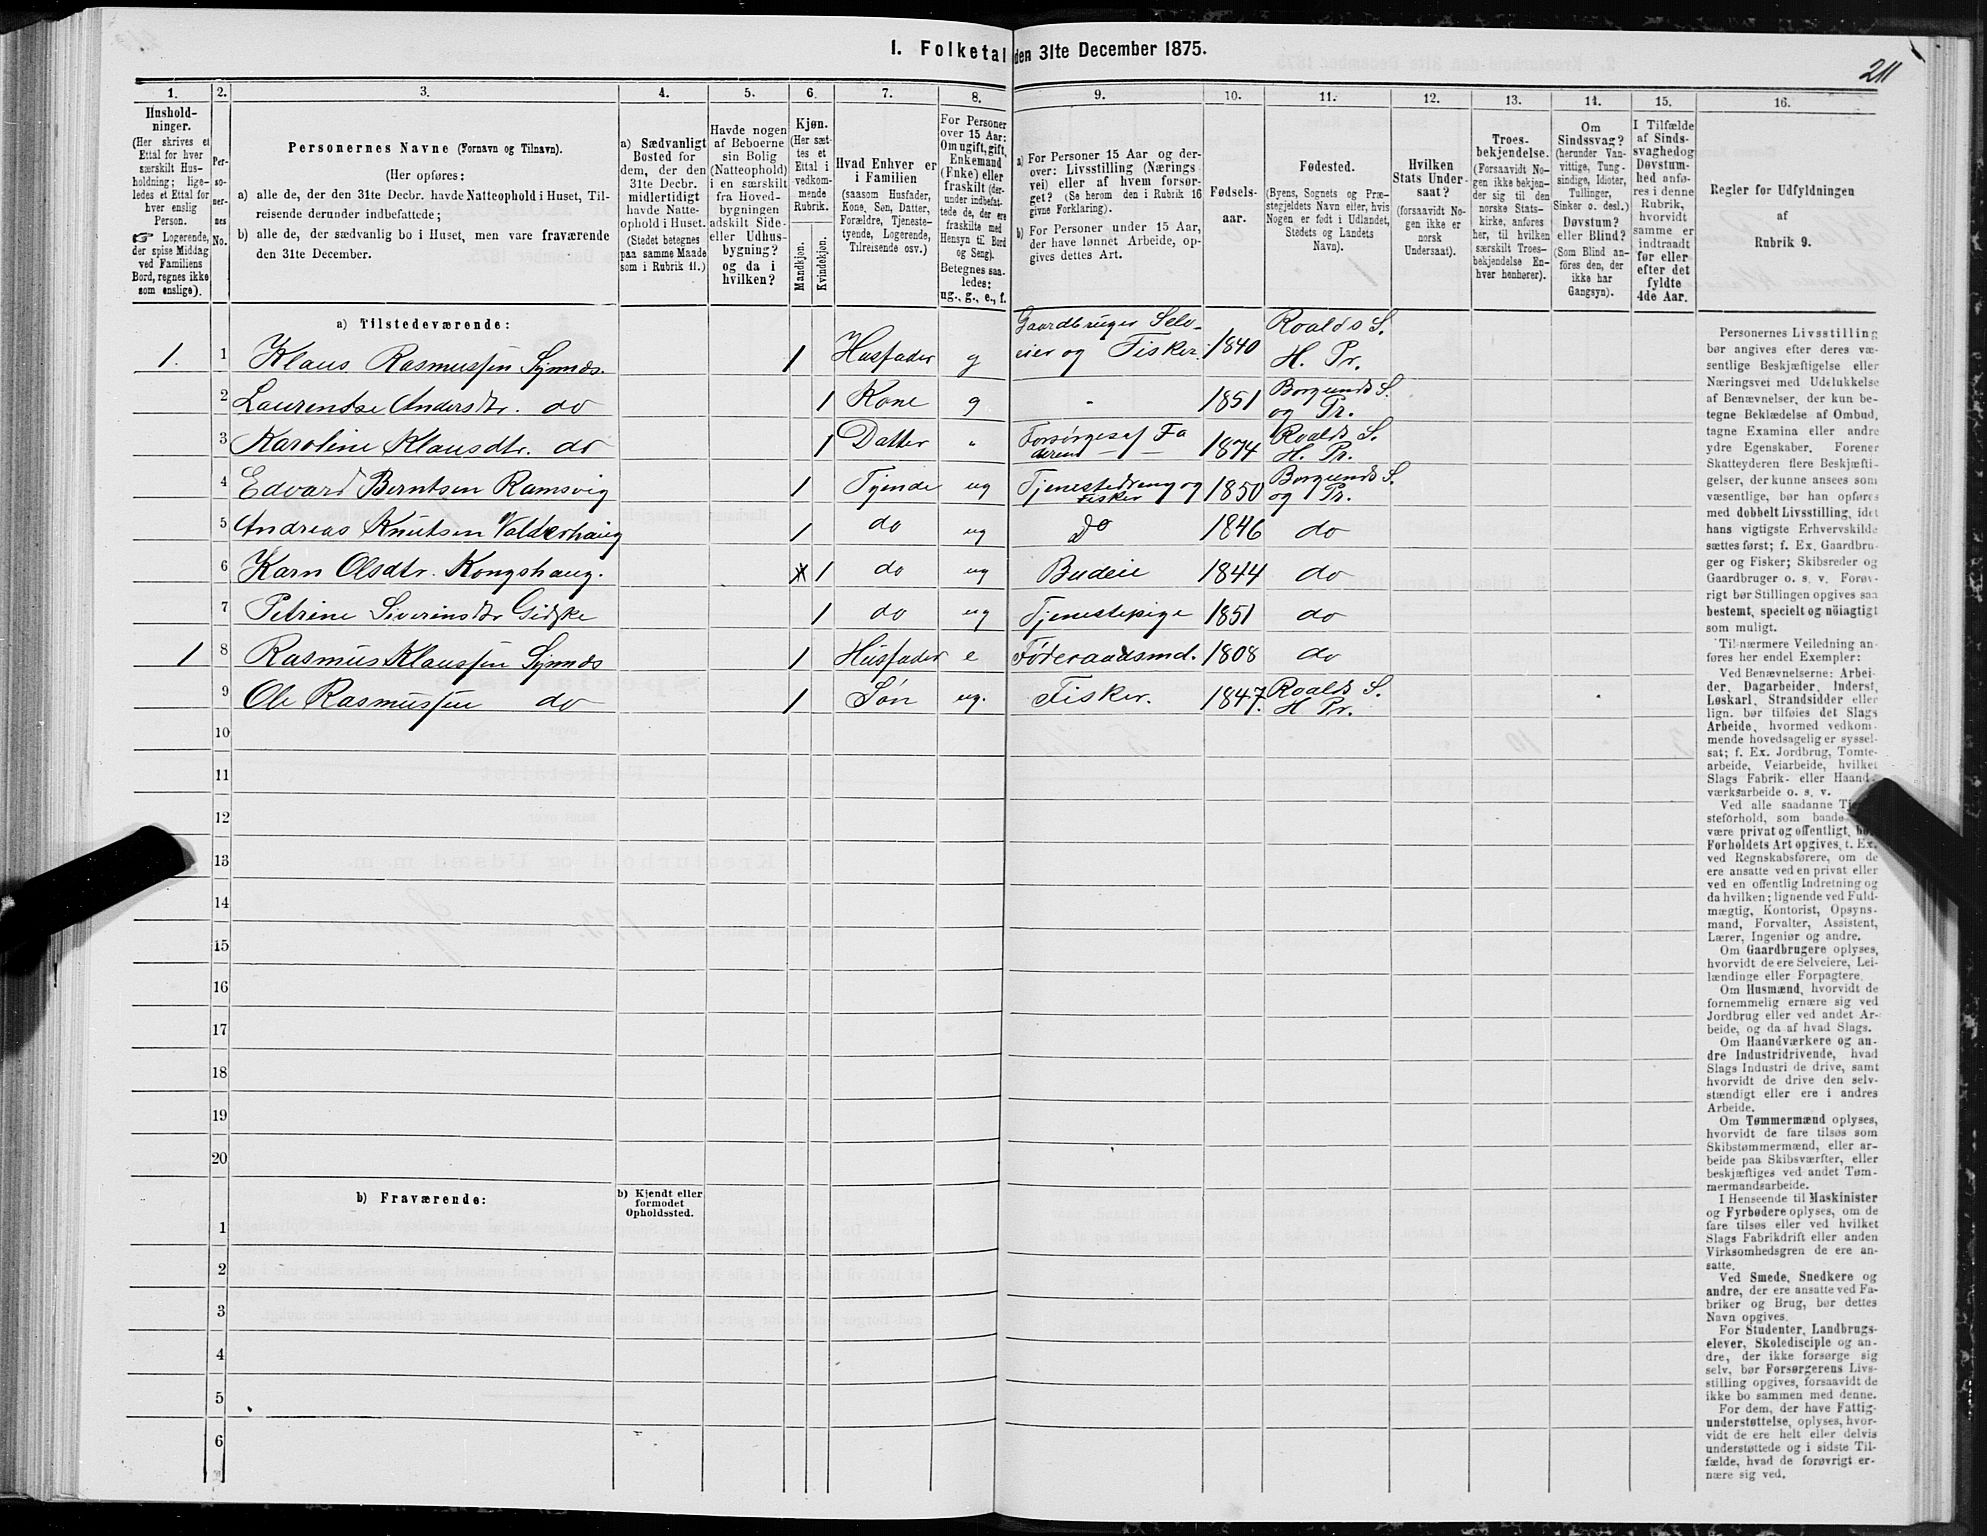 I. Folketal den 31te December 1875.
211
1. 2. 3. 4. 5. 6. 7. 8. 9. 10. 11. 12. 13. 14. 15. 16.
Hushold-
ninger.
(Her skrives et
Ettal for hver
særskilt Hus-
holdning; lige-
ledes et Ettal for
hver enslig
Person.
☞ Logerende,
der spise Middag
ved Familiens
Bord, regnes ikke
som enslige).
Per-
so-
ner-
nes
No.
Personernes Navne (Fornavn og Tilnavn).
(Her opføres:
a) alle de, der den 31te Decbr. havde Natteophold i Huset, Til-
reisende derunder indbefattede;
b) alle de, der sædvanlig bo i Huset, men vare fraværende
den 31te December.
a) Sædvanligt
Bosted for
dem, der den
31te Decbr.
midlertidigt
havde Natte-
ophold i Huset.
(Stedet betegnes
paa samme Maade
som i Rubrik 11.)
Havde nogen
af Beboerne
sin Bolig
(Natteophold)
i en særskilt
fra Hoved-
bygningen
adskilt Side-
eller Udhus-
bygning?
og da i
hvilken?
Kjøn.
(Her sæt-
tes et
Ettal i
vedkom-
mende
Rubrik.
Mandkjøn.
Kvindekjøn.
Hvad Enhver er
i Familien
(saasom Husfader,
Kone, Søn, Datter,
Forældre, Tjeneste-
tyende, Logerende,
Tilreisende osv.)
For Personer
over 15 Aar:
Om ugift, gift,
Enkemand
(Enke) eller
fraskilt (der-
under indbefat-
tede de, der ere
fraskilte med
Hensyn til Bord
og Seng).
Betegnes saa-
ledes:
ug., g., e., f.
a) For Personer 15 Aar og der-
over: Livsstilling (Nærings
vei) eller af hvem forsør-
get? (Se herom den i Rubrik 16
givne Forklaring).
b) For Personer under 15 Aar,
der have lønnet Arbeide, op-
gives dettes Art.
Fødsels-
aar.
Fødested.
(Byens, Sognets og Præ-
stegjeldets Navn eller, hvis
Nogen er født i Udlandet,
Stedets og Landets
Navn).
Hvilken
Stats Under-
saat?
(forsaavidt No-
gen ikke er
norsk
Undersaat).
Troes-
bekjendelse.
(Forsaavidt No-
gen ikke bekjen-
der sig til den
norske Stats-
kirke, anføres
her, til hvilken
særskilt Troes-
bekjendelse En-
hver henhører).
Om
Sindssvag?
(herunder Van-
vittige, Tung-
sindige, Idioter,
Tullinger,
Sinker o. desl.)
Døvstum?
eller Blind?
(Som Blind an-
føres den, der
ikke har
Gangsyn).
I Tilfælde
af Sinds-
svaghed og
Døvstum-
hed anfø-
res i denne
Rubrik,
hvorvidt
samme er
indtraadt
før eller
efter det
fyldte
4de Aar.
Regler for Udfyldningen
af
Rubrik 9.
a) Tilstedeværende:
1. 1 Klaus Rasmussen Synnæs. 1 Husfader g Gaardbruger Selv-eier og Fisker. 1840 Roalds S. H. Pr.
2 Laurentse Andersdtr. do 1 Kone g " 1851 Borgunds S. og Pr.
3 Karoline Klausdtr. do 1 Datter " Forsørges af Faderen 1874 Roalds S. H. Pr.
4 Edvard Berntsen Ramsvig 1 Tyende ug Tjenestedreng og Fisker 1850 Borgunds S. og Pr.
5 Andreas Knutsen Valderhaug 1 do ug Do 1846 do
6 Karn Olsdtr. Kongshaug. 1 do ug Budeie 1844 do
7 Petrine Siverinsdtr Gidske 1 do ug Tjenestepige 1851 do
1 8 Rasmus Klaussen Synnæs 1 Husfader e Føderaadsmd. 1808 do
9 Ole Rasmussen do 1 Søn ug. Fisker. 1847. Roalds S. H Pr.
10
11
12
13
14
15
16
17
18
19
20
b) Fraværende:
b) Kjendt eller
formodet
Opholdssted.
1
2
3
4
5
6
Personernes Livsstilling
bør angives efter deres væ-
sentlige Beskjæftigelse eller
Næringsvei med Udelukkelse
af Benævnelser, der kun be-
tegne Beklædelse af Ombud,
tagne Examina eller andre
ydre Egenskaber. Forener
Skatteyderen flere Beskjæfti-
gelser, der kunne ansees som
væsentlige, bør han opføres
med dobbelt Livsstilling, idet
hans vigtigste Erhvervskilde
sættes først; f. Ex. Gaardbru-
ger og Fisker; Skibsreder og
Gaardbruger o. s. v. Forøv-
rigt bør Stillingen opgives saa
bestemt, specielt og nøiagtigt
som muligt.
Til nærmere Veiledning an-
føres her endel Exempler:
Ved Benævnelserne: Arbei-
der, Dagarbeider, Inderst,
Løskarl, Strandsidder eller
lign. bør tilføies det Slags
Arbeide, hvormed vedkom-
mende hovedsagelig er syssel-
sat; f. Ex. Jordbrug, Tomte-
arbeide, Veiarbeide, hvilket
Slags Fabrik- eller Haand-
værksarbeide o. s. v.
Ved alle saadanne
steforhold, som baade
være privat og offentligt,
Forholdets Art opgives, f. Ex.
ved Regnskabsførere, om de
ere ansatte ved en privat eller
ved en offentlig Indretning og
da hvilken; lignende ved Fuld-
mægtig, Kontorist, Opsyns-
mand, Forvalter, Assistent,
Lærer, Ingeniør og andre.
Om Gaardbrugere oplyses,
hvorvidt de ere Selveiere, Lei-
lændinge eller Forpagtere.
Om Husmænd, hvorvidt de
fornemmelig ernære sig ved
Jordbrug eller ved andet Ar-
beide, og da af hvad Slags.
Om Haandværkere og an-
dre Industridrivende, hvad
Slags Industri de drive, samt
hvorvidt de drive den selv-
stændigt eller ere i andres
Arbeide.
Om Tømmermænd oplyses,
hvorvidt de fare tilsøs som
Skibstømmermænd, eller ar-
beide paa Skibsværfter, eller
beskjæftiges ved andet Tøm-
mermandsarbeide.
I Henseende til Maskinister
og Fyrbødere oplyses, om de
fare tilsøs eller ved hvilket
Slags Fabrikdrift eller anden
Virksomhedsgren de ere an-
satte.
Ved Smede, Snedkere og
andre, der ere ansatte ved Fa-
briker og Brug, bør dettes
Navn opgives.
For Studenter, Landbrugs-
elever, Skoledisciple og an-
dre, der ikke forsørge sig
selv, bør Forsørgerens Livs-
stilling opgives, forsaavidt de
ikke bo sammen med denne.
For dem, der have Fattig-
understøttelse, oplyses, hvor-
vidt de ere helt eller delvis
understøttede og i sidste Til-
fælde, hvad de forøvrigt er-
nære sig ved.